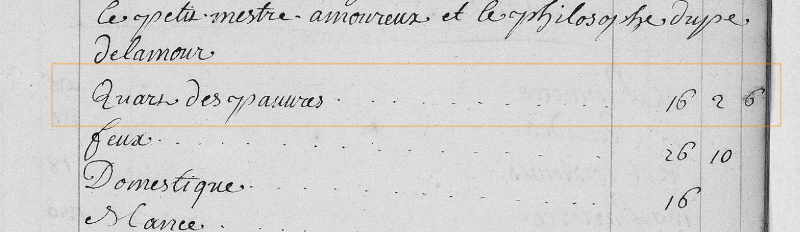 le petit mestre amoureux et le philosophe dupe
de lamour
Quart des pauures . . . . . . . 16 2 6
feux . . . . . . . . . . 26 10
Domestique . . . . . . . . 16
Mance